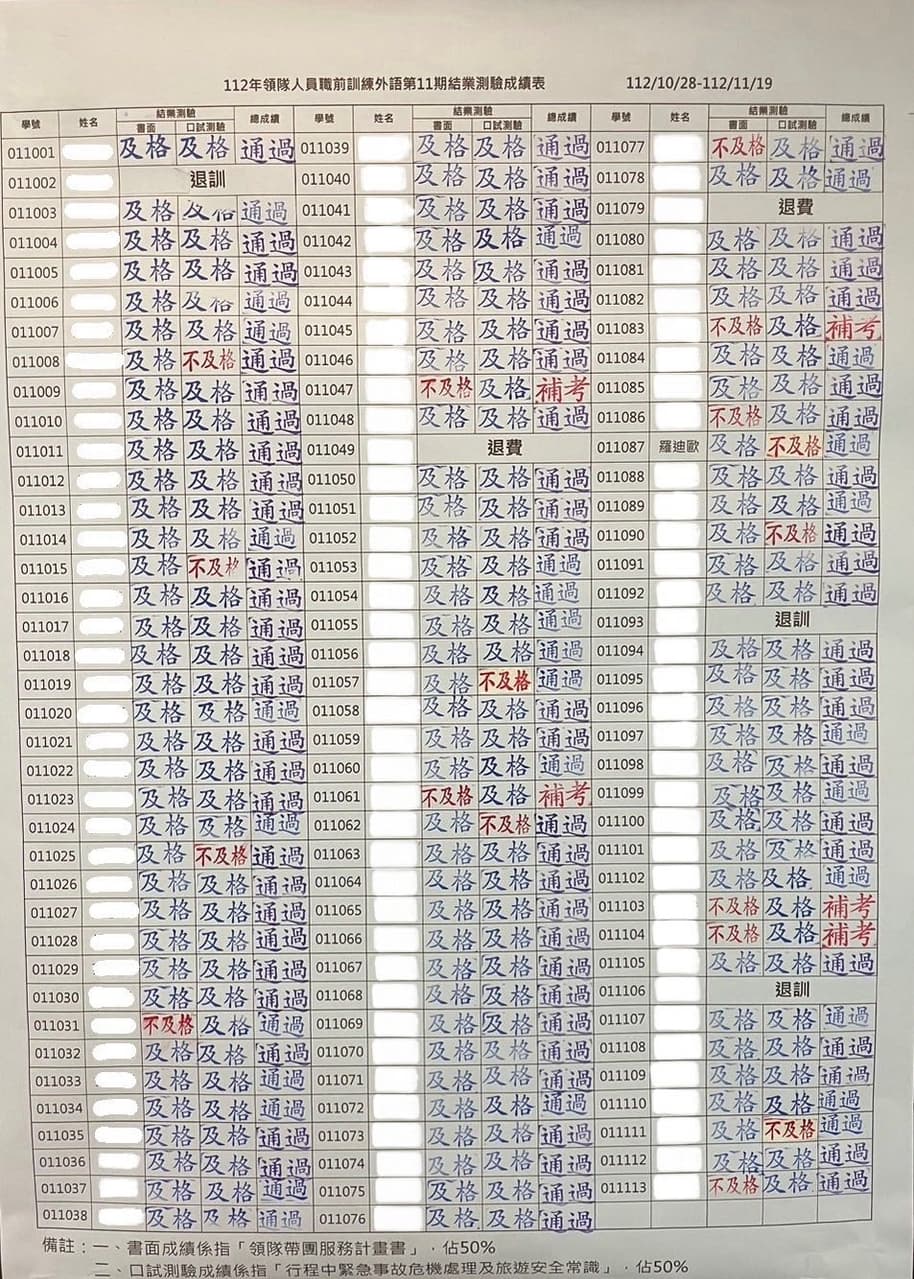 112年領隊人員職前訓練外語第11期結業測驗成績表 112/10/28-112/11/19
學號 姓名 結業測驗 總成績 學號 姓名 結業測驗 總成績 學號 姓名 結業測驗 總成績
書面 口試測驗 書面 口試測驗 書面 口試測驗
011001 及格 及格 通過 011039 及格 及格 通過 011077 不及格 及格 通過
011002 退訓 011040 及格 及格 通過 011078 及格 及格 通過
011003 及格 及格 通過 011041 及格 及格 通過 011079 退費
011004 及格 及格 通過 011042 及格 及格 通過 011080 及格 及格 通過
011005 及格 及格 通過 011043 及格 及格 通過 011081 及格 及格 通過
011006 及格 及格 通過 011044 及格 及格 通過 011082 及格 及格 通過
011007 及格 及格 通過 011045 及格 及格 通過 011083 不及格 及格 補考
011008 及格 不及格 通過 011046 及格 及格 通過 011084 及格 及格 通過
011009 及格 及格 通過 011047 不及格 及格 補考 011085 及格 及格 通過
011010 及格 及格 通過 011048 及格 及格 通過 011086 不及格 及格 通過
011011 及格 及格 通過 011049 退費 011087 羅迪歐 及格 不及格 通過
011012 及格 及格 通過 011050 及格 及格 通過 011088 及格 及格 通過
011013 及格 及格 通過 011051 及格 及格 通過 011089 及格 及格 通過
011014 及格 及格 通過 011052 及格 及格 通過 011090 及格 不及格 通過
011015 及格 不及格 通過 011053 及格 及格 通過 011091 及格 及格 通過
011016 及格 及格 通過 011054 及格 及格 通過 011092 及格 及格 通過
011017 及格 及格 通過 011055 及格 及格 通過 011093 退訓
011018 及格 及格 通過 011056 及格 及格 通過 011094 及格 及格 通過
011019 及格 及格 通過 011057 及格 不及格 通過 011095 及格 及格 通過
011020 及格 及格 通過 011058 及格 及格 通過 011096 及格 及格 通過
011021 及格 及格 通過 011059 及格 及格 通過 011097 及格 及格 通過
011022 及格 及格 通過 011060 及格 及格 通過 011098 及格 及格 通過
011023 及格 及格 通過 011061 不及格 及格 補考 011099 及格 及格 通過
011024 及格 及格 通過 011062 及格 不及格 通過 011100 及格 及格 通過
011025 及格 不及格 通過 011063 及格 及格 通過 011101 及格 及格 通過
011026 及格 及格 通過 011064 及格 及格 通過 011102 及格 及格 通過
011027 及格 及格 通過 011065 及格 及格 通過 011103 不及格 及格 補考
011028 及格 及格 通過 011066 及格 及格 通過 011104 不及格 及格 補考
011029 及格 及格 通過 011067 及格 及格 通過 011105 及格 及格 通過
011030 及格 及格 通過 011068 及格 及格 通過 011106 退訓
011031 不及格 及格 通過 011069 及格 及格 通過 011107 及格 及格 通過
011032 及格 及格 通過 011070 及格 及格 通過 011108 及格 及格 通過
011033 及格 及格 通過 011071 及格 及格 通過 011109 及格 及格 通過
011034 及格 及格 通過 011072 及格 及格 通過 011110 及格 及格 通過
011035 及格 及格 通過 011073 及格 及格 通過 011111 及格 不及格 通過
011036 及格 及格 通過 011074 及格 及格 通過 011112 及格 及格 通過
011037 及格 及格 通過 011075 及格 及格 通過 011113 不及格 及格 通過
011038 及格 及格 通過 011076 及格 及格 通過
備註：一、書面成績係指「領隊帶團服務計畫書」，佔50%
二、口試測驗成績係指「行程中緊急事故危機處理及旅遊安全常識」，佔50%